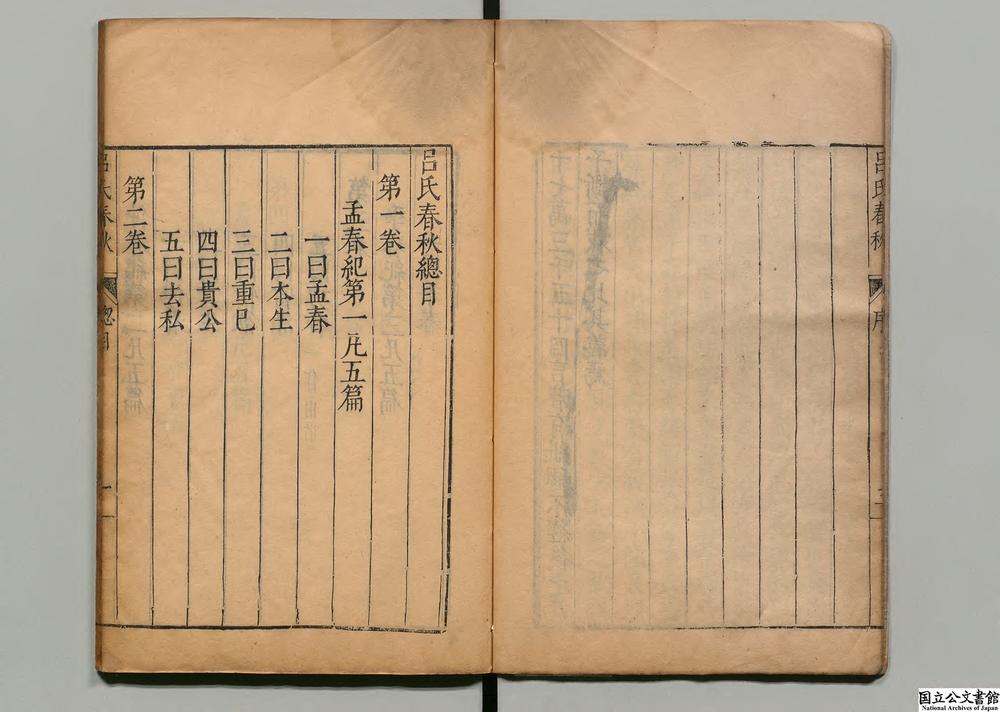 呂氏春秋
序
三
呂氏春秋總目
第一卷
孟春紀第一凡五篇
一曰孟春
二曰本生
三曰重巳
四曰貴公
五曰去私
第二卷
呂氏春秋
總目
一
国立公文書館
National Archives of Japan